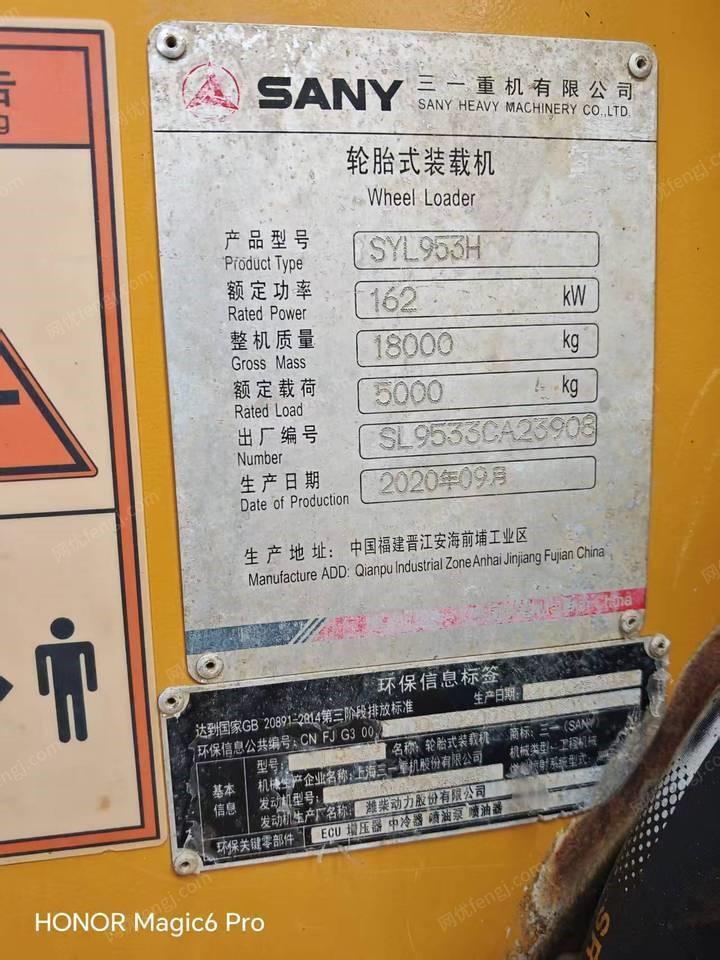 告
SANY 三一重机有限公司
SANY HEAVY MACHINERY CO.,LTD.
轮胎式装载机
Wheel Loader
产品型号 SYL953H
Product Type
额定功率 162 kW
Rated Power
整机质量 18000 kg
Gross Mass
额定载荷 5000 kg
Rated Load
出厂编号 SL9533CA23908
Number
生产日期 2020年09月
Date of Production
生产地址: 中国福建晋江安海前埔工业区
Manufacture ADD: Qianpu Industrial Zone Anhai Jinjiang Fujian China
China
环保信息标签
达到国家GB 20891-2014第三阶段排放标准 生产日期:
环保信息公共编号: CN FJ G3 00
型号: 名称: 轮胎式装载机 商标: 三一(SANY)
机械生产企业名称: 上海三一重机股份有限公司 机械类型: 工程机械
基本信息
发动机型号:
发动机生产厂名称: 潍柴动力股份有限公司
环保关键零部件 ECU 增压器 中冷器 喷油泵 喷油器
HONOR Magic6 Pro
网优fengj.com